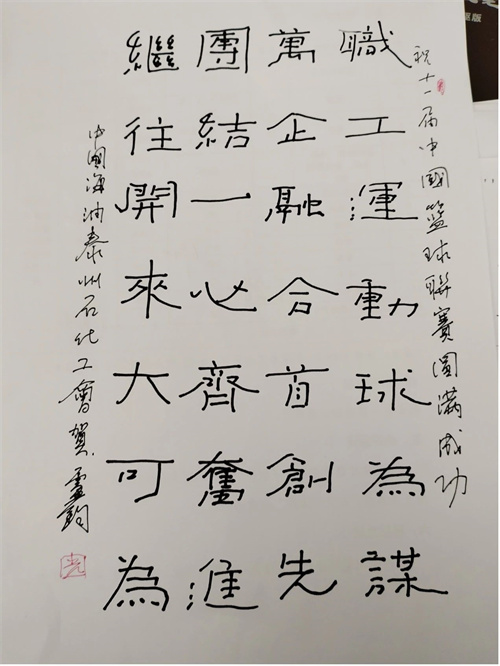 祝十一届中國籃球聯賽圓滿成功
職工運動球為謀
萬企融合首創先
團結一心齊奮進
繼往開來大可為
中國海油泰州石化工會賀